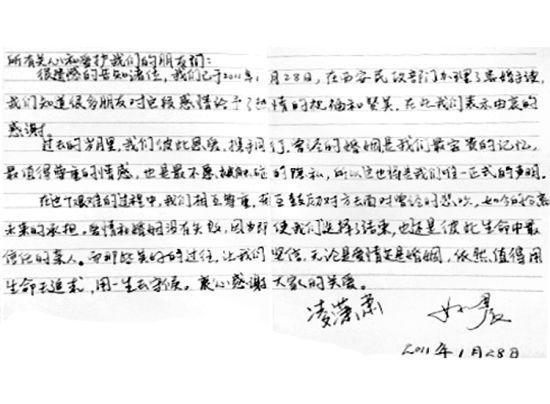 所有关心和爱护我们的朋友们：
很遗憾的告知诸位，我们已于2011年1月28日，在西安民政部门办理了离婚手续，
我们知道很多朋友对这段感情给予了热情的祝福和赞美，在此我们表示由衷的
感谢。
过去的岁月里，我们彼此恩爱，携手同行，曾经的婚姻是我们最宝贵的记忆，
最值得尊重的情感，也是最不愿被触碰的隐私，所以这也将是我们唯一正式的声明。
在这个艰难的过程中，我们相互尊重，互鼓励对方去面对曾经的悲欢，如今的分离
未来的承担。爱情和婚姻没有失败，因为即使我们选择了结束，也还是彼此生命中最
信任的亲人。而那些美好的过往，让我们坚信，无论是爱情还是婚姻，依然值得用
生命去追求，用一生去守候。衷心感谢大家的关爱。
凌潇肃
2011年1月28日